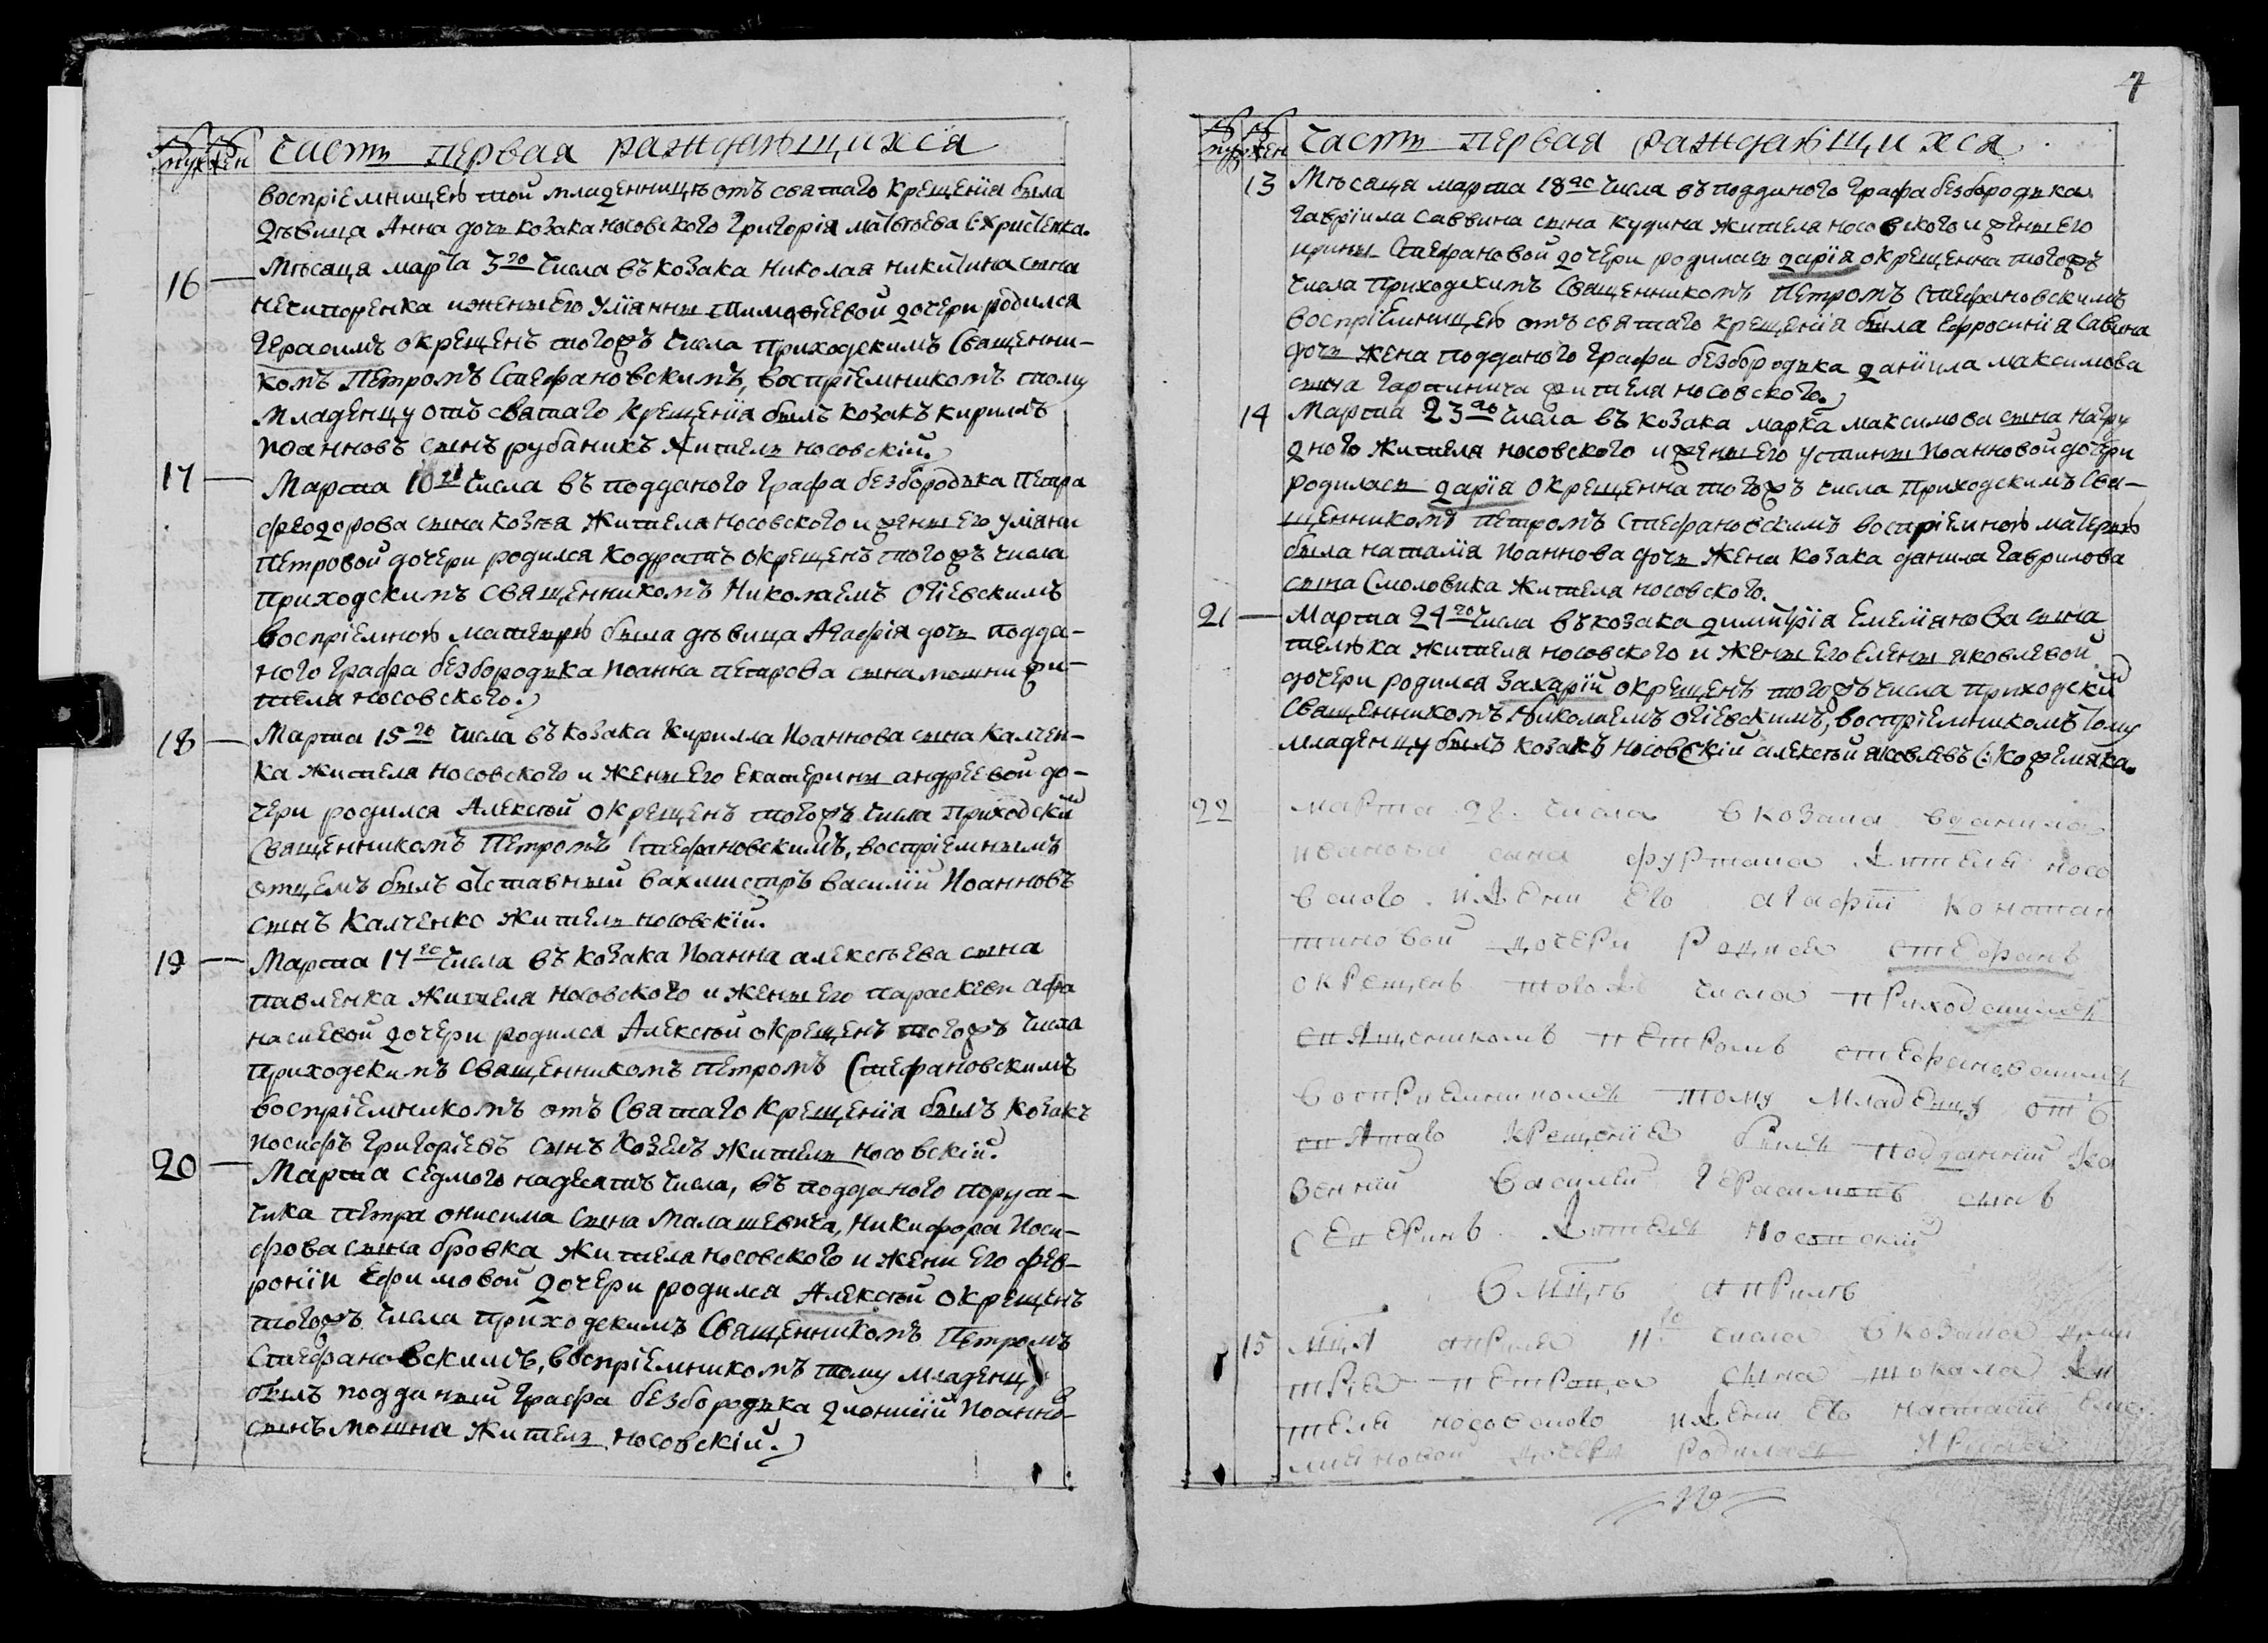 № муж № жен Часть первая раждающихся
воспріемницею той младенницѣ отъ святаго крещенія была
дѣвица Анна дочь козака носовского Григорія Матвѣева Христенка.
16 — Мѣсяца марта 3го числа въ козака Николая Никитина сына
Нечипоренка и жены его Уліанны Тимофеевой дочери родился
Герасимъ окрещенъ тогожъ числа приходскимъ священни-
комъ Петромъ Стефановскимъ, воспріемникомъ тому
младенцу отъ святаго крещенія былъ козакъ Кириллъ
Иоанновъ сынъ Рубаникъ житель носовскій.
17 — Марта 10го числа въ подданого графа безбородька Петра
Феодорова сына Козѣя жителя носовского и жены его Уліяни
Петровой дочери родился Кодратъ окрещенъ тогожъ числа
приходскимъ священникомъ Николаемъ Огіевскимъ
воспріемною матерью была дѣвица Агафія дочь подда-
ного графа безбородька Иоанна Петрова сына мошни жи-
теля носовского.
18 — Марта 15го числа въ козака Кирилла Иоаннова сына Калчен-
ка жителя носовского и жены его Екатерины Андреевой до-
чери родился Алексѣй окрещенъ тогожъ числа приходским
священникомъ Петромъ Стефановскимъ, воспріемнымъ
отцемъ былъ отставный вахмистръ Василій Иоанновъ
сынъ Калченко житель носовскій.
19 — Марта 17го числа въ козака Иоанна Алексѣева сына
Павленка жителя носовского и жены его Параскеви Афа
насиевой дочери родился Алексѣй окрещенъ тогожъ числа
приходскимъ священникомъ Петромъ Стефановскимъ
воспріемникомъ отъ святаго крещенія былъ козакъ
Иосифъ Григоріевъ сынъ Козелъ житель носовскій.
20 — Марта седмого надесять числа, въ подданого порут-
чика Петра Онисима сына Малашевича, Никифора Иоси-
фова сына бровка жителя носовского и жени его Фев-
роніи Ефимовой дочери родился Алексѣй окрещенъ
тогожъ числа приходскимъ священникомъ Петромъ
Стефановскимъ, воспріемникомъ тому младенцу
былъ подданый графа безбородька Діонисій Иоаннов
сынъ мошна житель носовскій.
4
№ муж № жен Часть первая раждающихся
13 Мѣсяца марта 18го числа въ подданого графа безбородька
Гавріила Саввина сына Кудина жителя носовского и жены его
Ирины Стефановой дочери родилась Дарія окрещенна тогожъ
числа приходскимъ священникомъ Петромъ Стефановскимъ
воспріемницею отъ святаго крещенія была Ефросинія Савина
дочь жена подданого графа безбородька Даніила Максимова
сына жителя носовского.
14 Марта 23го числа въ козака Марка Максимова сына Нагру
дного жителя носовского и жены его Устины Иоанновой дочери
родилась Дарія окрещенна тогожъ числа приходскимъ свя-
щенникомъ Петромъ Стефановскимъ воспріемною матерью
была Наталія Иоаннова дочь жена козака Данила Гаврилова
сына Смоловика жителя носовского.
21 — Марта 24го числа въ козака Димитрія Емеліянова сына
жителя носовского и жены его Елены Яковлевой
дочери родился Захарій окрещенъ тогожъ числа приходским
священникомъ Николаемъ Огіевскимъ, воспріемникомъ тому
младенцу былъ козакъ носовскій Алексѣй Яковлевъ С: Кожемяка.
22 марта 28. числа в козака Данила
иванова сына фурмана жителя носо
вского. и жени его агафіи констан
тиновой дочери родився стефанъ
окрещенъ тогожъ числа приходскимъ
священикомъ петромъ стефановскимъ
восприемникомъ тому младенцу отъ
святаго крещенія билъ подданній ка
зенній Василій Герасимовъ синъ
Северинъ житель носовскій
в мцѣ априлѣ
15 мця априля 11го числа в козака дми
трія петрова сина токала жи
теля носовского и жени его настасіи
дочери родилась